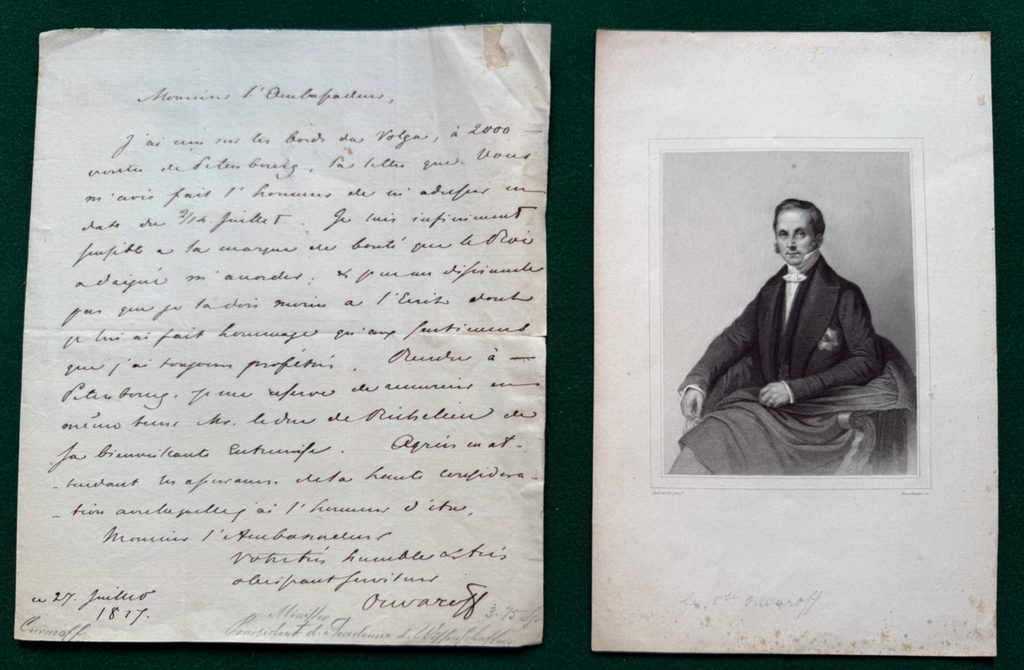 Monsieur l'Ambassadeur,
J'ai reçu sur les bords du Volga, à 2000 —
verstes de Petersbourg, la lettre que Vous
m'avez fait l'honneur de m'adresser en
date du 2/14 Juillet. Je suis infiniment
sensible à la marque de bonté que le Roi
a daigné m'accorder; & je ne me dissimule
pas que je la dois moins à l'Ecrit dont
je lui ai fait hommage qu'aux sentimens
que j'ai toujours professés. Rendu à —
Petersbourg, je me reserve de remercier en
même tems Mr. le duc de Richelieu de
sa bienveillante Entremise. Agréez en at-
-tendant les assurances de la haute considera-
-tion avec laquelle j'ai l'honneur d'être,
Monsieur l'Ambassadeur
Votre très humble et très
obeissant serviteur
Ouvaroff
ce 27. Juillet
1817.
3.75
Minister
Ouvaroff
Praesident d. Academie d. Wissenschaften
Le Cte Ouvaroff